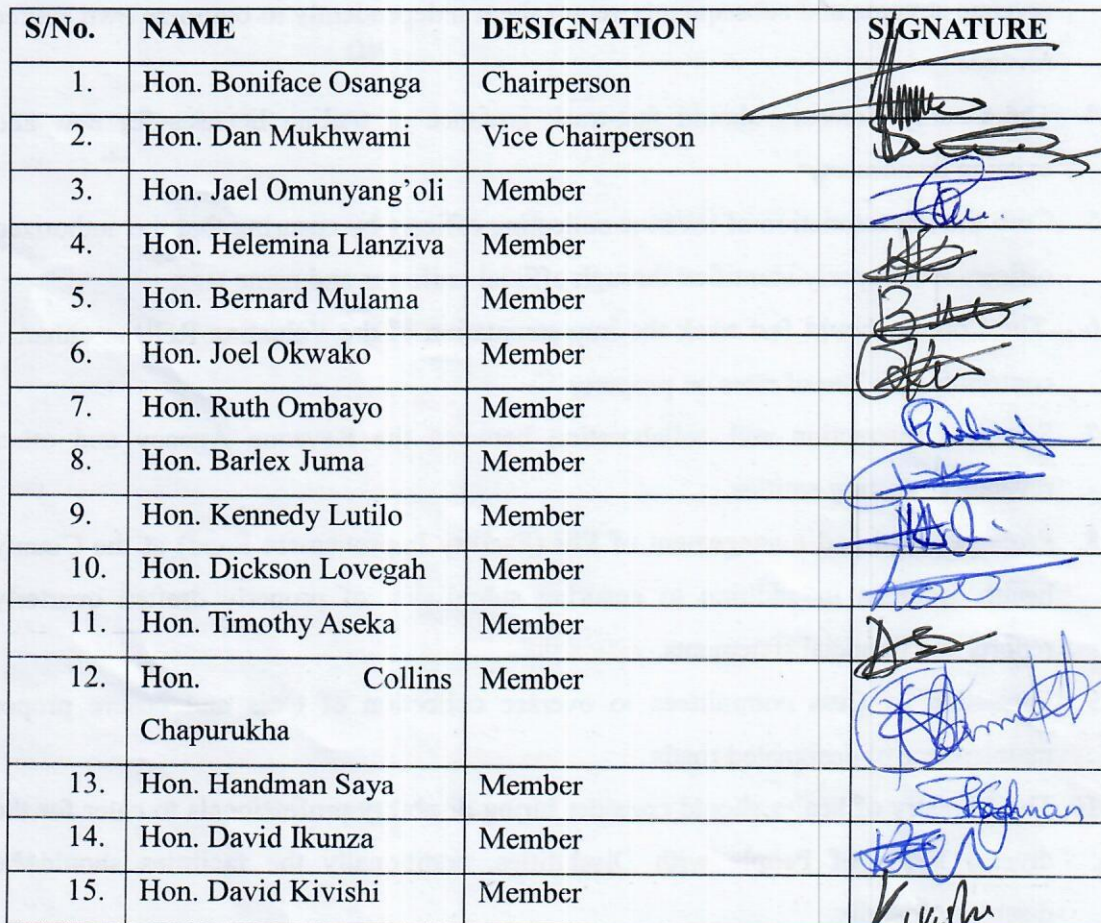 S/No. NAME DESIGNATION SIGNATURE
1. Hon. Boniface Osanga Chairperson
2. Hon. Dan Mukhwani Vice Chairperson
3. Hon. Jael Omunyang’oli Member
4. Hon. Helemina Llanziva Member
5. Hon. Bernard Mulama Member
6. Hon. Joel Okwako Member
7. Hon. Ruth Ombayo Member
8. Hon. Barlex Juma Member
9. Hon. Kennedy Lutilo Member
10. Hon. Dickson Lovegah Member
11. Hon. Timothy Aseka Member
12. Hon. Collins Member
Chapurukha
13. Hon. Handman Saya Member
14. Hon. David Ikunza Member
15. Hon. David Kivishi Member